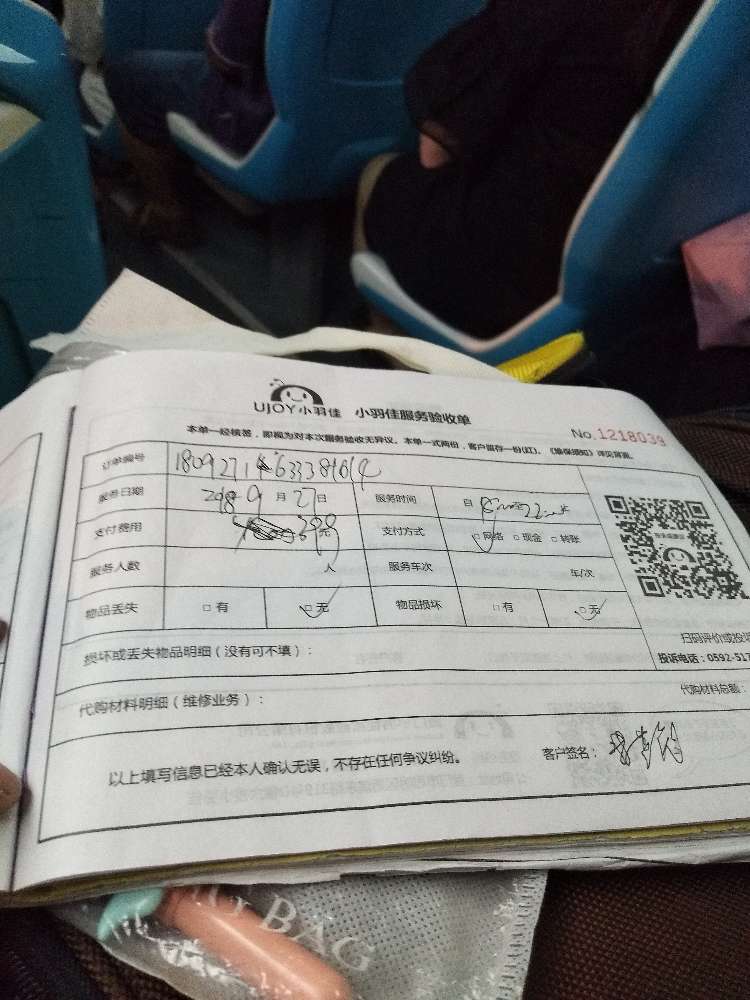 UJOY小羽佳 小羽佳服务验收单
No.1218039
本单一经核签，即视为对本次服务验收无异议。本单一式两份，客户留存一份(红)。《维保须知》详见背面。
订单编号
服务日期 2018年9月27日 服务时间 自
支付费用 399元 支付方式 □网络 □现金 □转账
服务人数 人 服务车次 车/次
物品丢失 □有 □无 物品损坏 □有 □无
扫码评价或投诉
投诉电话：0592-517
损坏或丢失物品明细（没有可不填）：
代购材料明细（维修业务）： 代购材料总额：
以上填写信息已经本人确认无误，不存在任何争议纠纷。 客户签名：
BAG